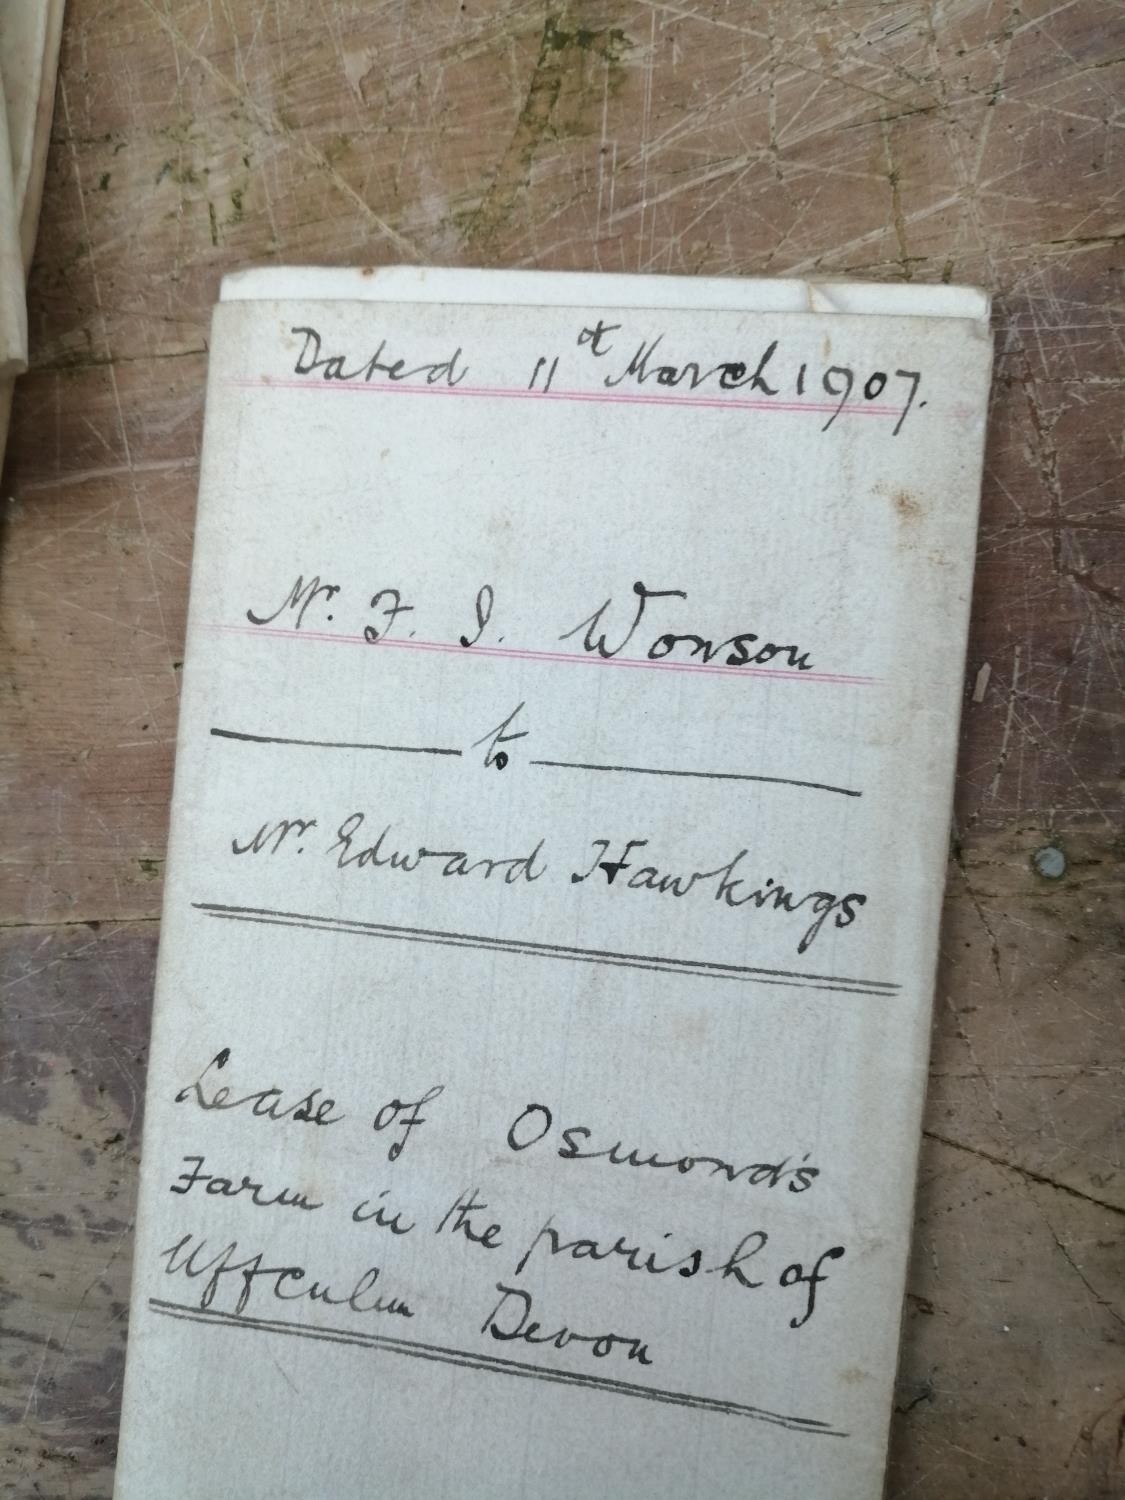 Dated 11th March 1907.
Mr. F. I. Wonson
to
Mr. Edward Hawkings
Lease of Osmond's
Farm in the parish of
Uffculm Devon